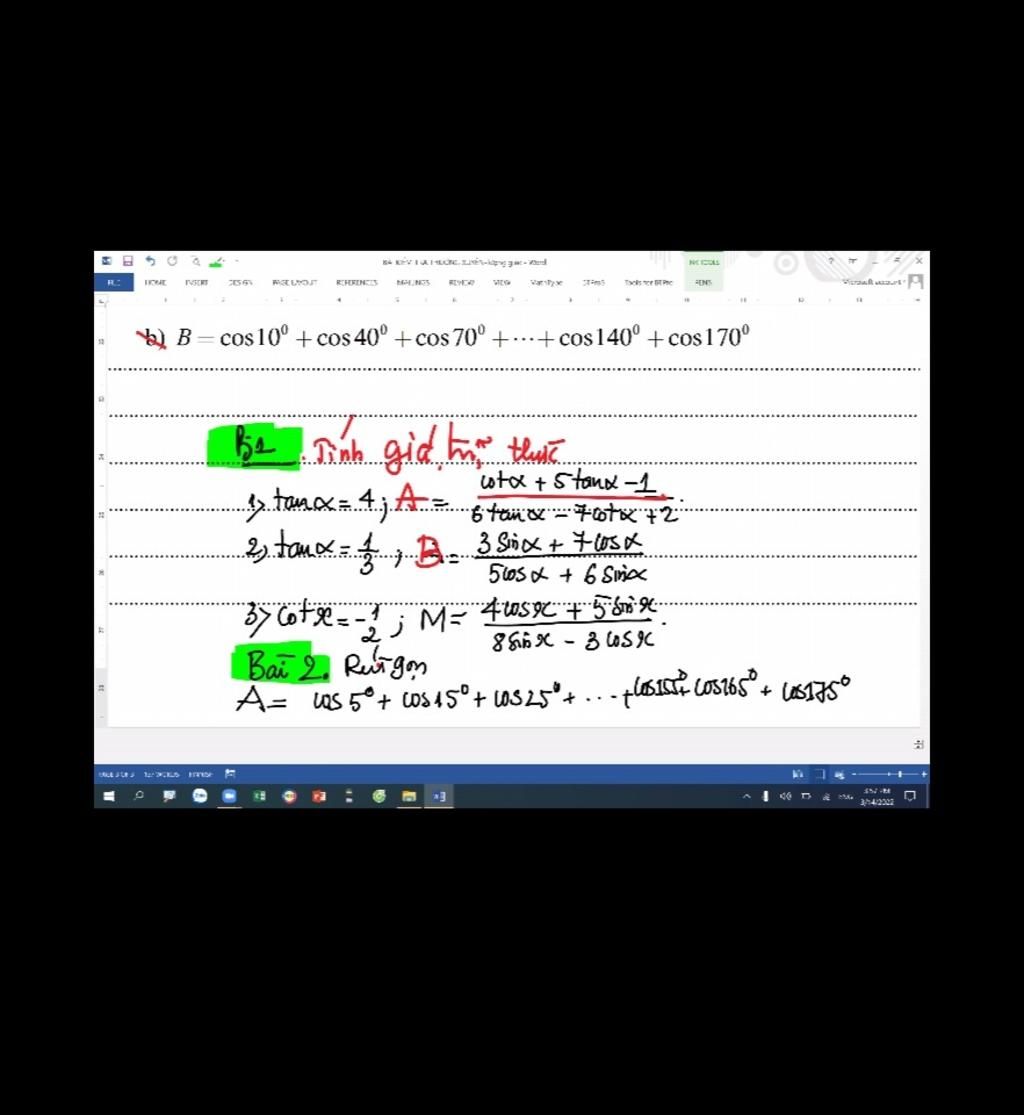 HOME INSERT DESIGN PAGE LAYOUT REFERENCES MAILINGS REVIEW VIEW MathType Tools for BTPro PENS Microsoft account
b) B = cos10⁰ + cos40⁰ + cos70⁰ + ⋯ + cos140⁰ + cos170⁰
B1. Tính giá trị thức
1) tanα = 4 ; A = (cotα + 5tanα - 1)/(6tanα - 7cotα + 2).
2) tanα = 1/3 ; B = (3sinα + 7cosα)/(5cosα + 6sinα)
3) cotx = -1/2 ; M = (4cosx + 5sinx)/(8sinx - 3cosx).
Bài 2. Rút gọn
A = cos5⁰ + cos15⁰ + cos25⁰ + ... + cos155⁰ + cos165⁰ + cos175⁰
3:57 PM
3/14/2022